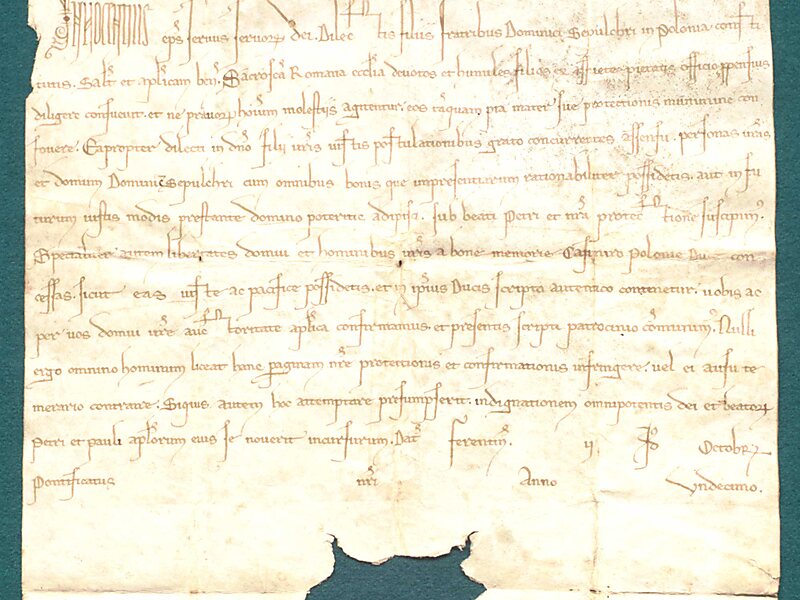 INNOCENTIUS ep̄s servus servoꝝ dei. Dilectis filiis fratribus Dominici Sepulchri in Polonia consti
tutis. Salt̄ et aplicam ben̄. Sacrosc̄a Romana ecclia devotos et humiles filios ex assuete pietatis officio ppensius
diligere consuevit. et ne pravoꝝ hoīum molestiis agitentur. eos tāquam pia mater sue protectionis munimine con
fovere. Eapropter dilecti in dn̄o filii vr̄is iustis postulationibus grato concurrentes assensu. personas vr̄as
et domum Dominici Sepulchri cum omnibus bonis que impresentiarum rationabiliter possidetis. aut in fu
turum iustis modis prestante domino poteritis adipisci. sub beati Petri et nr̄a protectione suscipim᾽.
Specialit̄ autem libertates domui et hominibus vr̄is a bone memorie Casimiro Polonie Duce con
cessas. sicut eas iuste ac pacifice possidetis. et in ipsius Ducis scripto autentico continetur. vobis ac
per vos domui vr̄e auctoritate aplica confirmamus. et presentis scripti patrocinio cōmunim᾽. Nulli
ergo omnino hominum liceat hanc paginam nr̄e protectionis et confirmationis infringere. vel ei ausu te
merario contraire. Siquis autem hoc attemptare presumpserit. indignationem omnipotentis dei et beatoꝝ
Petri et pauli aplorum eius se noverit incursurum. Dat̄ ferentin̄. ij Id̄ Octobꝝ
Pontificatus nr̄i Anno Undecimo.